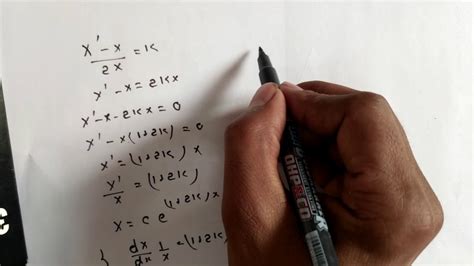 x' - x / 2x = k
x' - x = 2kx
x' - x - 2kx = 0
x' - x(1+2k) = 0
x' = (1+2k) x
x' / x = (1+2k)
x = c e^(1+2k)x
dx/dx 1/x = (1+2k)
OHP&CD